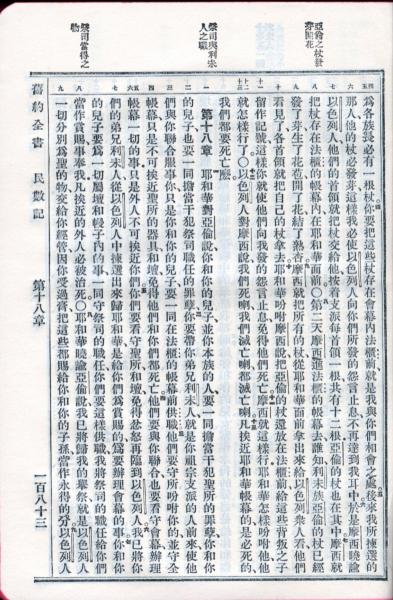 亞倫之杖發
芽開花
祭司與利未
人之職
祭司當得之
物
為各族長必有一根杖你要把這些杖存在會幕內法櫃前就是我與你們相會之處後來我所揀選的
那人他的杖必發芽這樣我必使以色列人向你們所發的怨言止息不再達到我耳中於是摩西曉諭
以色列人他們的首領就把杖交給他按著支派每首領一根共有十二根亞倫的杖也在其中摩西就
把杖存在法櫃的帳幕內在耶和華面前〇第二天摩西進法櫃的帳幕去誰知利未族亞倫的杖已經
發了芽生了花苞開了花結了熟杏摩西就把所有的杖從耶和華面前拿出來給以色列眾人看他們
看見了各首領就把自己的杖拿去耶和華吩咐摩西說把亞倫的杖還放在法櫃前給這些背叛之子
留作記號這樣你就使他們向我發的怨言止息免得他們死亡摩西就這樣行了耶和華怎樣吩咐他他
就怎樣行了〇以色列人對摩西說我們死喇我們滅亡喇都滅亡喇凡挨近耶和華帳幕的是必死的
我們都要死亡麼
第十八章 耶和華對亞倫說你和你的兒子並你本族的人要一同擔當干犯聖所的罪孽你和你
的兒子也要一同擔當干犯祭司職任的罪孽你要帶你弟兄利未人就是你祖宗支派的人前來使他
們與你聯合服事你只是你和你的兒子要一同在法櫃的帳幕前供職他們要守所吩咐你的並守全
帳幕只是不可挨近聖所的器具和壇免得他們和你們都死亡他們要與你聯合也要看守會幕辦理
帳幕一切的事只是外人不可挨近你們你們要看守聖所和壇免得忿怒再臨到以色列人我已將你
們的弟兄利未人從以色列人中揀選出來歸耶和華是給你們為賞賜的為要辦理會幕的事你和你
的兒子要為一切屬壇和幔子內的事一同守祭司的職任你們要這樣供職我將祭司的職任給你們
當作賞賜事奉我凡挨近的外人必被治死〇耶和華曉諭亞倫說我已將歸我的舉祭就是以色列人
一切分別為聖的物交給你經管因你受過膏把這些都賜給你和你的子孫當作永得的分以色列人
舊約全書 民數記 第十八章 一百八十三